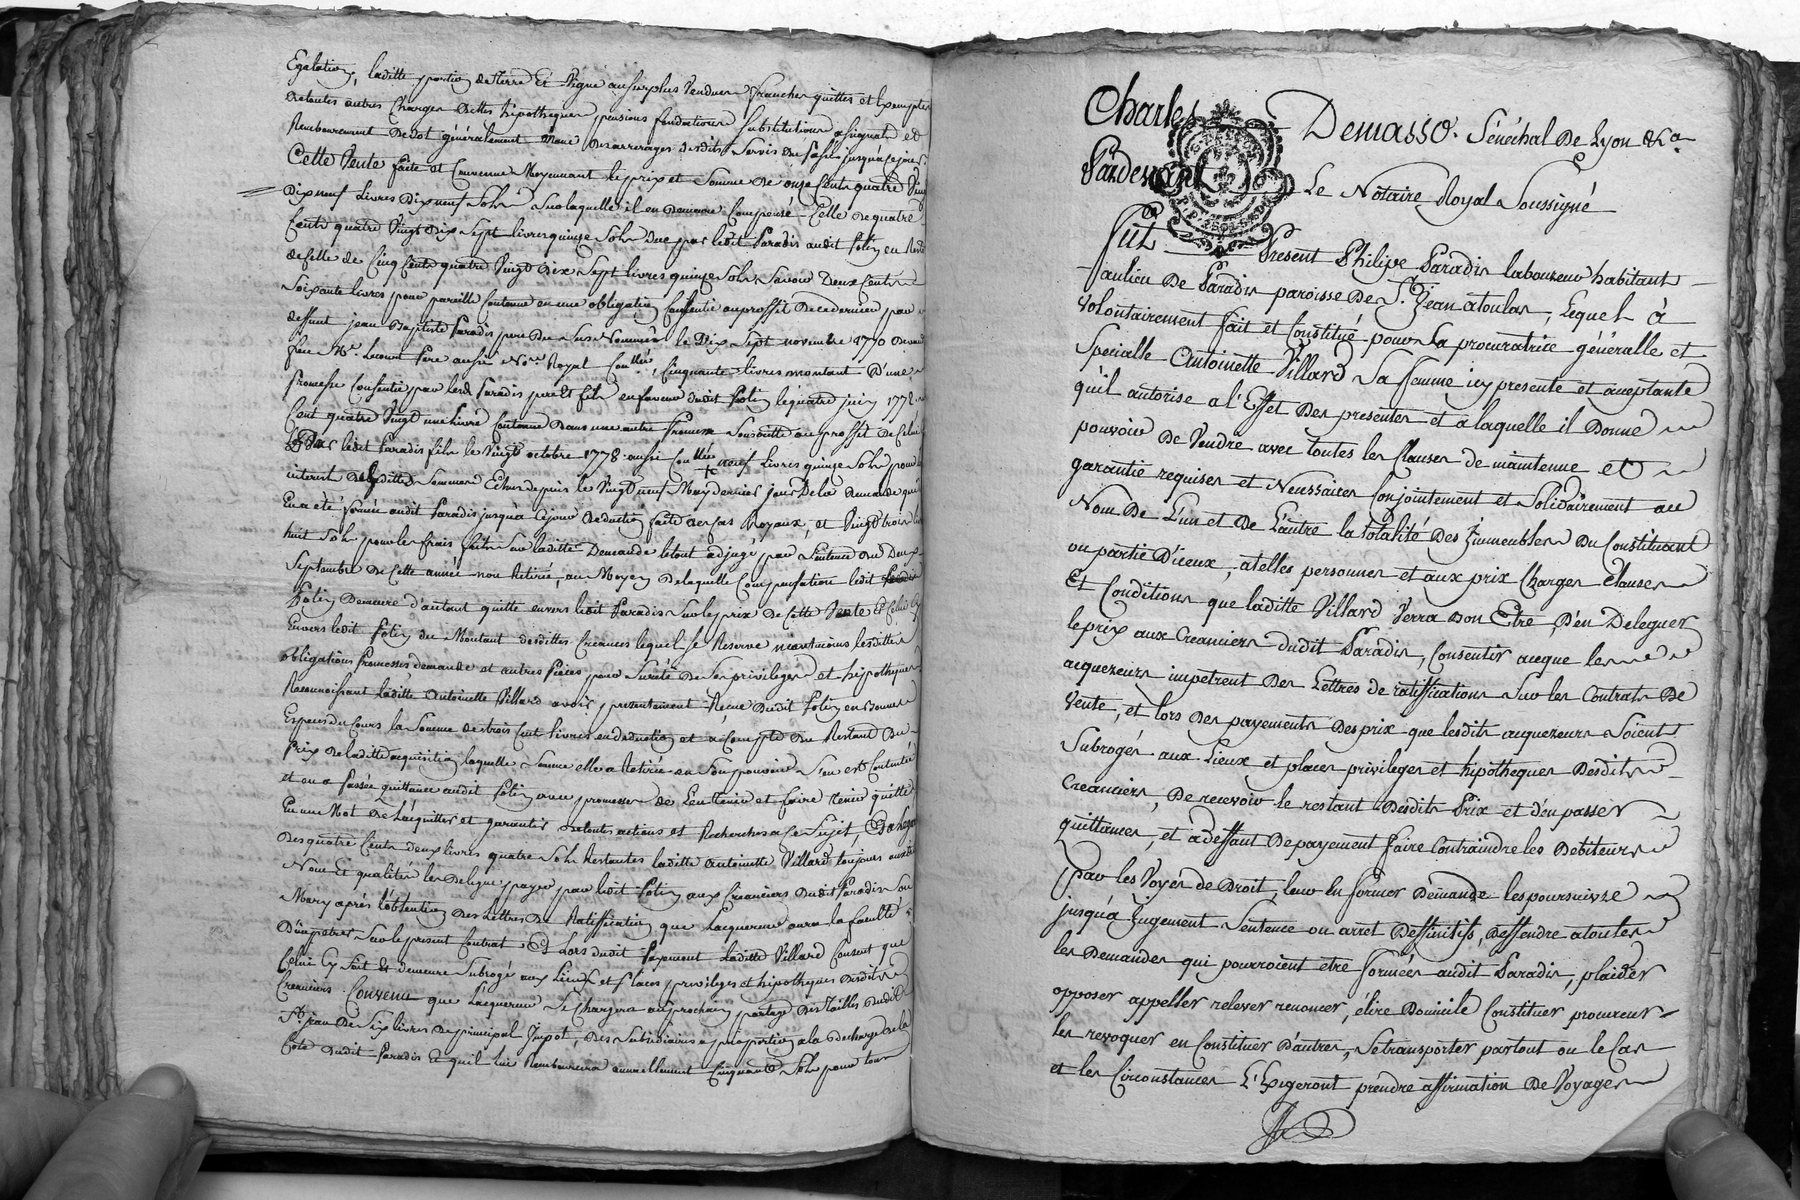 Egalation, laditte portion de Terre Et Vigne au surplus Vendues franches quittes et Exemptes
de toutes autres Charges Dettes hipotheques, pensions fondations Substitutions et
Remboursement De dot généralement des arrerages desdits Servis du passé jusqu'a ce jour
Cette Vente faite et Convenue Moyennant le prix et Somme De onze Cents quatre Vingt
Dix neuf Livres Dix neuf Sols Sur laquelle il en Demeure Compensé Celle de quatre
Cents quatre Vingt Dix Sept livres quinze Sols due par ledit Paradis audit Potin en
de celle de Cinq Cents quatre Vingt Dix Sept livres quinze Sols Savoir Deux Cents
Soixante livres pour pareille Contenue en une obligation Consentie au proffit De ce dernier par
deffunt jean Baptiste Paradis pere Du Sus Nommé le Dix Sept novembre 1770 devant
feu Me. Pere aussi Nore. Royal Conllé, Cinquante livres montant D'une
Promesse Consentie par lesd. Paradis pere Et fils en faveur dudit Potin le quatre juin 1772
Cent quatre Vingt une livre Contenue Dans une autre Promesse Souscritte au proffit De Celui
Par ledit Paradis fils le Vingt octobre 1778 aussi Conllée neuf Livres quinze Sols pour
interest desdittes Sommes Echus depuis le Vingt neuf May dernier jour De la Demande qui
En a été formée audit Paradis jusqu'a Ce jour Deduction faite Royaux, et Vingt trois
huit Sols pour les frais faits Sur laditte Demande le tout adjugé par Sentence du Deux
Septembre De Cette année non Retirée, au Moyen De laquelle Compensation ledit
Potin Demeure d'autant quitte envers ledit Paradis Sur le prix De Cette Vente Et Celui Cy
Envers ledit Potin du Montant desdittes Creances lequel Se Reserve neantmoins lesdittes
obligations Promesses demande et autres Pieces pour Sureté De Ses privileges et hipotheques
Reconnoissant laditte Antoinette Villard avoir presentement Reçue Dudit Potin en Bonnes
Especes du Cours la Somme de trois Cent livres en deduction et à Compte Du Restant Du
Prix De laditte acquisition laquelle Somme elle a Retirée en Son pouvoir S'en est Contentée
et en a Passée quittance audit Potin avec promesse De L'en tenir et faire tenir quitte
En un Mot De L'acquitter et garantir de toutes actions et Recherches a Ce Sujet
Des quatre Cents deux livres quatre Sols Restantes laditte Antoinette Villard toujours auxdits
Nom Et qualités les Delegue payer par ledit Potin aux Creanciers Dudit Paradis Son
Mary après l'obtention Des Lettres De Ratiffication que L'acquereur aura la faculté
D'impetrer Sur le present Contrat et Lors dudit Payement laditte Villard Consent que
Celui Cy Soit Et demeure Subrogé aux Lieux et places privileges et hipotheques Desdits
Creanciers. Convenu que L'acquereur Se Chargera au prochain partage Des tailles Dudit
St. jean De Six livres De principal Impot, Des Subsidiaires a proportion a la Decharge de la
Cote Dudit Paradis Et qu'il lui Remboursera annuellement Cinquante Sols pour tous
Charles Demasso. Sénéchal De Lyon &ca
Pardevant Le Notaire Royal Soussigné
Fut Présent Philipe Paradis laboureur habitant
au lieu De Paradis paroisse De St. Jean atoulas, Lequel à
Volontairement fait et Constitué pour Sa procuratrice générralle et
Specialle Antoinette Villard Sa femme icy presente et aceptante
qu'il autorise a l'Effet Des presentes et a laquelle il Donne
pouvoir De Vendre avec toutes les Clauses de maintenue et
garantie requises et Nessaires Conjointement et Solidairement au
Nom De L'un et De L'autre la totalité Des Immeubles Du Constituant
ou partie D'iceux, atelles personnes et aux prix Charges Clauses
Et Conditions que laditte Villard Verra Bon Etre, D'en Deleguer
le prix aux Creanciers dudit Paradis, Consentir aceque les
acquereurs impetrent Des Lettres de ratiffications Sur les Contrats De
Vente, et lors Des payements Des prix que lesdits acquereurs Soient
Subrogés aux Lieux et places privileges et hipotheques Desdits
Creanciers, De recevoir le restant Desdits Prix et d'en passer
quittances, et à deffaut De payement faire Contraindre les Debiteurs
par les Voyes de Droit, leur En former Demande les poursuivre
jusqu'a Jugement Sentence ou arret Deffinitifs, Deffendre atoutes
les Demandes qui pourroient etre formées audit Paradis, plaider
opposer appeller relever renoncer, élire Domicile Constituer procureur
les revoquer en Constituer D'autres, Se transporter partout ou le Cas
et les Circonstances L'Exigeront prendre affirmation De Voyages